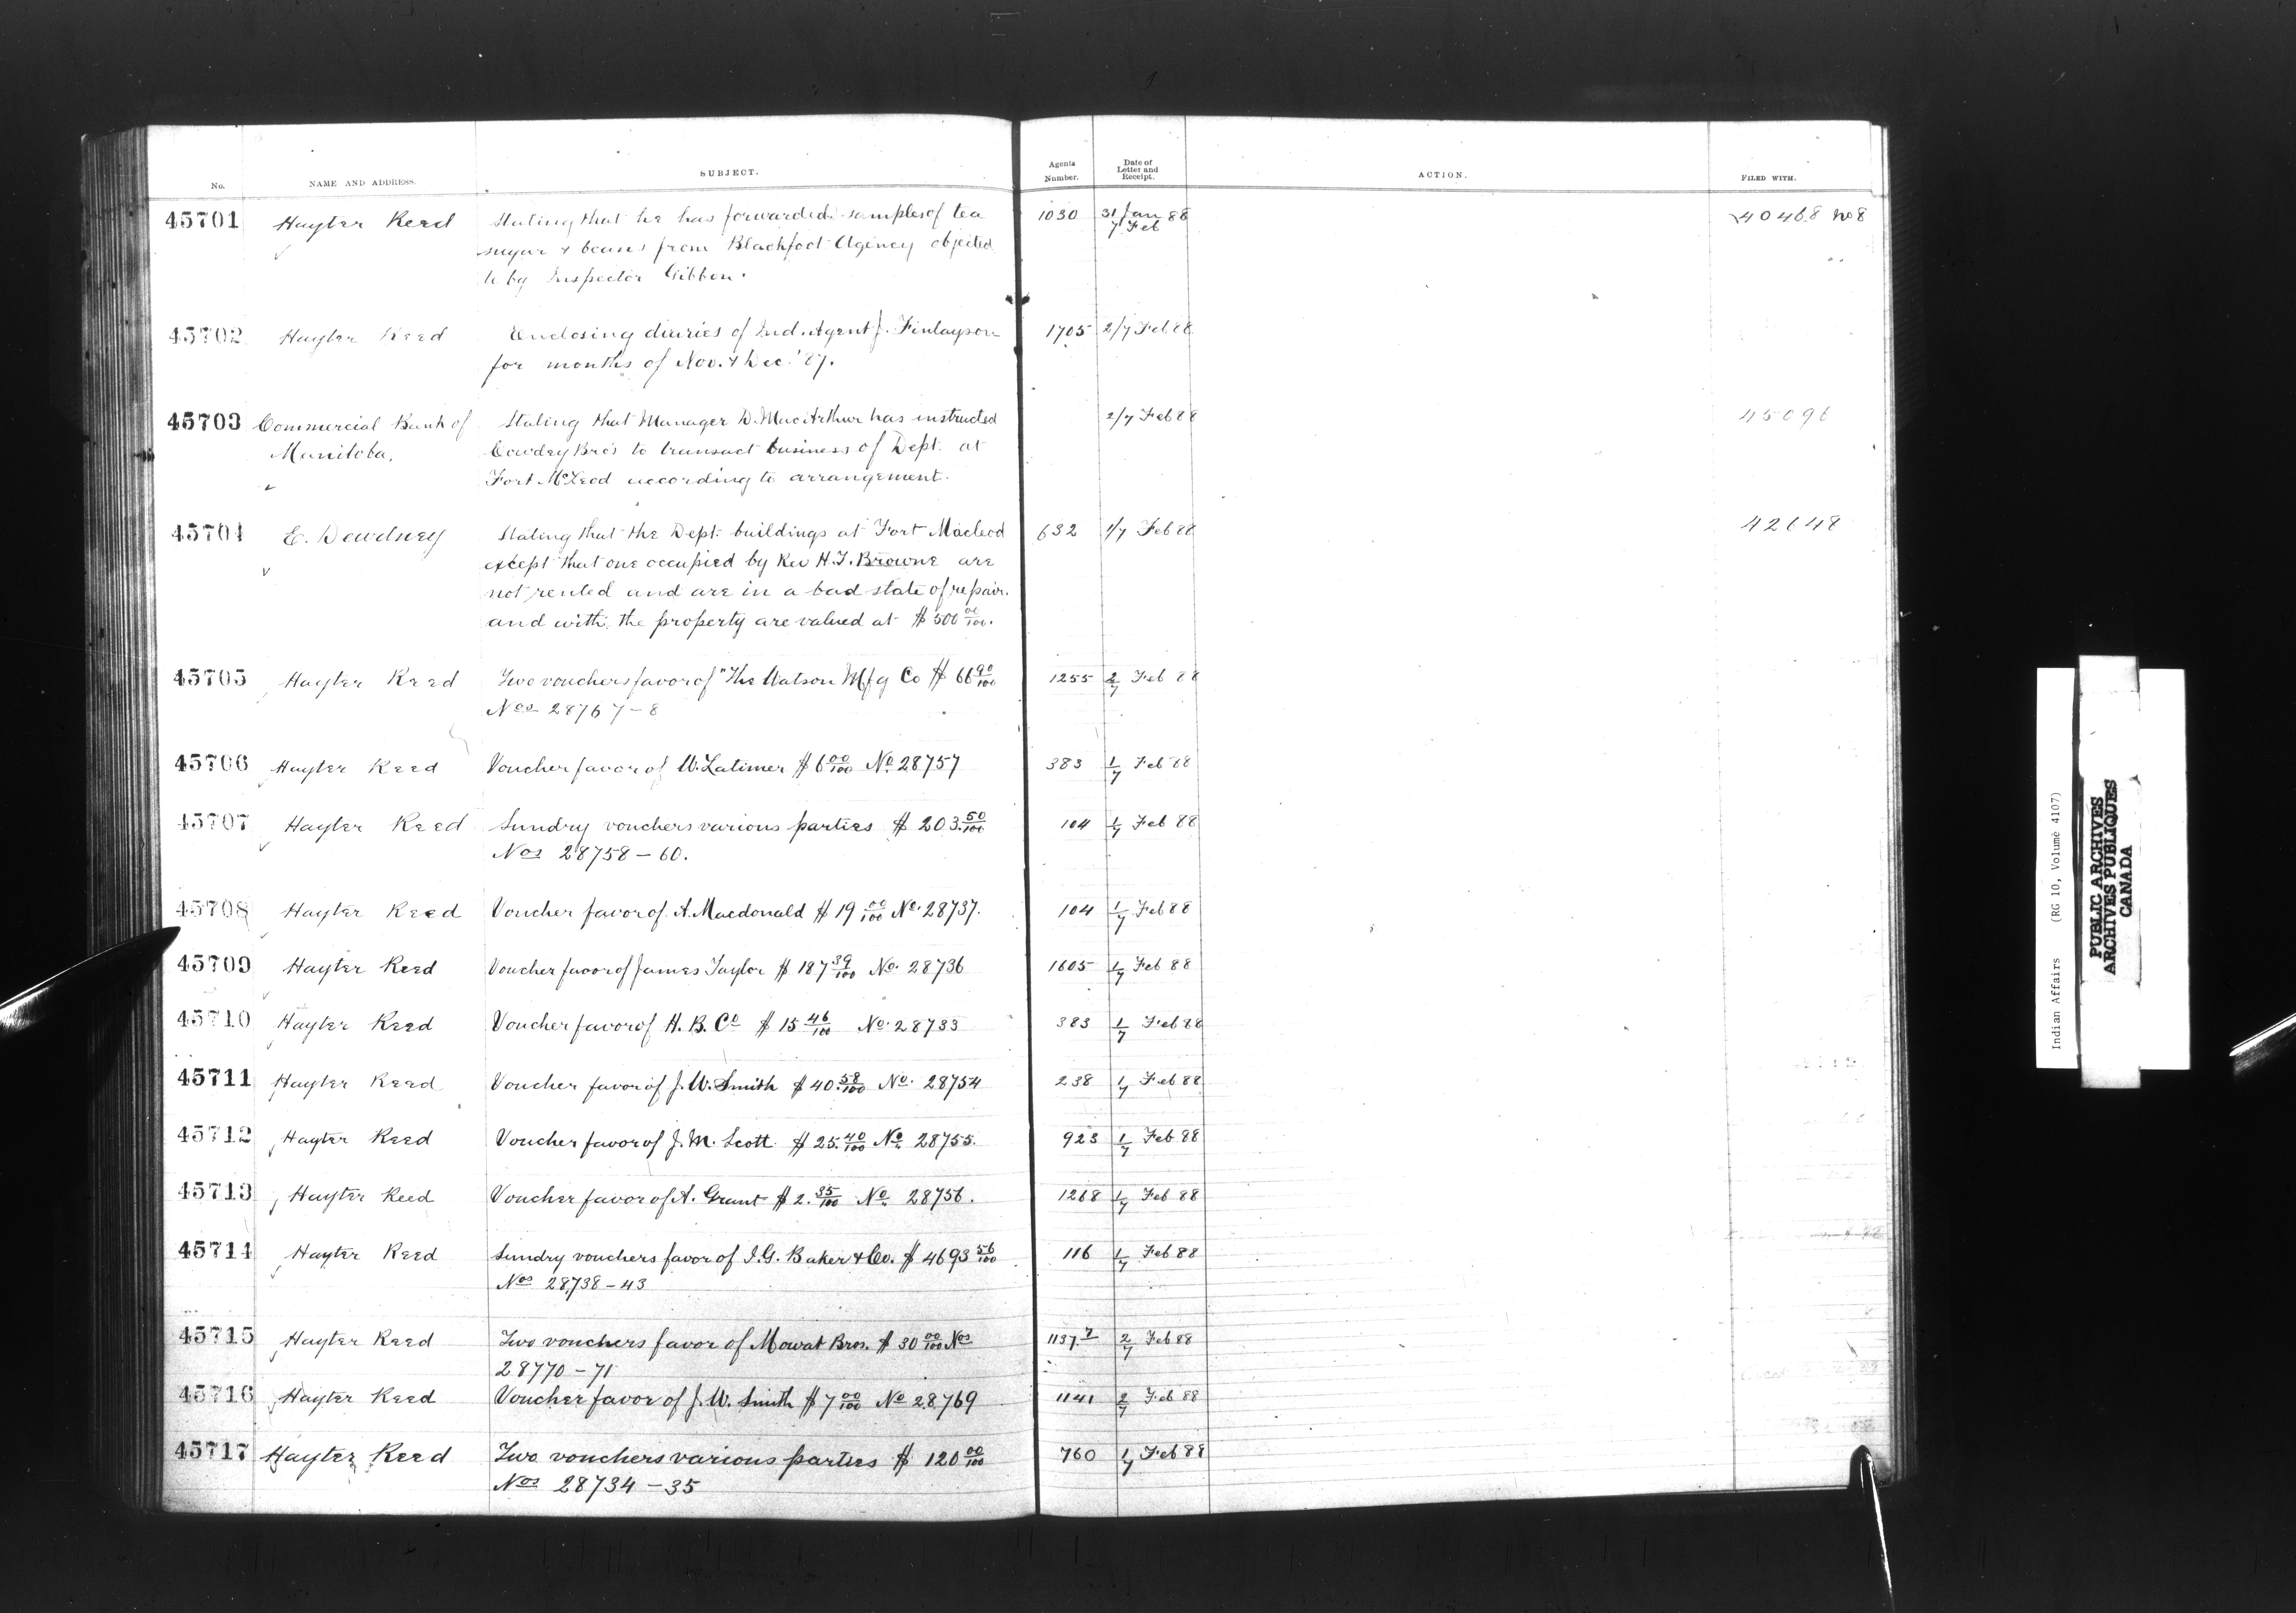 No. NAME AND ADDRESS. SUBJECT. Agents Number. Date of Letter and Receipt. ACTION. FILED WITH.
45701 Hayter Reed Stating that he has forwarded samples of tea 1030 31 Jan 88 40468 No 8
sugar & beans from Blackfoot Agency objected 7 Feb
to by Inspector Gibbon.
45702 Hayter Reed Enclosing diaries of Ind. Agent J. Finlayson 1705 2/7 Feb 88
for months of Nov. & Dec. '87.
45703 Commercial Bank of Stating that Manager D. MacArthur has instructed 2/7 Feb 88 45096
Manitoba, Cowdry Bro's to transact business of Dept. at
Fort McLeod according to arrangement.
45704 E. Dewdney Stating that the Dept. buildings at Fort Macleod 632 1/7 Feb 88 42648
except that one occupied by Rev H.T. Browne are
not rented and are in a bad state of repair.
and with the property are valued at $500 00/100.
45705 Hayter Reed Two vouchers favor of "The Watson Mfg Co $66 90/100 1255 2/7 Feb 88
Nos 28767-8
45706 Hayter Reed Voucher favor of W. Latimer $6 00/100 No 28757 383 1/7 Feb 88
45707 Hayter Reed Sundry vouchers various parties $203. 50/100 104 1/7 Feb 88
Nos 28758-60.
45708 Hayter Reed Voucher favor of A. Macdonald $19 00/100 No. 28737. 104 1/7 Feb 88
45709 Hayter Reed Voucher favor of James Taylor $187 39/100 No. 28736 1605 1/7 Feb 88
45710 Hayter Reed Voucher favor of H. B. Co $15 46/100 No. 28733 383 1/7 Feb 88
45711 Hayter Reed Voucher favor of J. W. Smith $40. 58/100 No. 28754 238 1/7 Feb 88
45712 Hayter Reed Voucher favor of J. M. Scott $25. 40/100 No. 28755. 923 1/7 Feb 88
45713 Hayter Reed Voucher favor of A. Grant $2. 35/100 No. 28756. 1268 1/7 Feb 88
45714 Hayter Reed Sundry vouchers favor of I. G. Baker & Co. $4693 56/100 116 1/7 Feb 88
Nos 28738-43
45715 Hayter Reed Two vouchers favor of Mowat Bros. $30 00/100 Nos 1137.7 2/7 Feb 88
28770-71
45716 Hayter Reed Voucher favor of J. W. Smith $7 00/100 No 28769 1141 2/7 Feb 88
45717 Hayter Reed Two vouchers various parties $120 00/100 760 1/7 Feb 88
Nos 28734-35
Indian Affairs (RG 10, Volume 4107)
PUBLIC ARCHIVES
ARCHIVES PUBLIQUES
CANADA